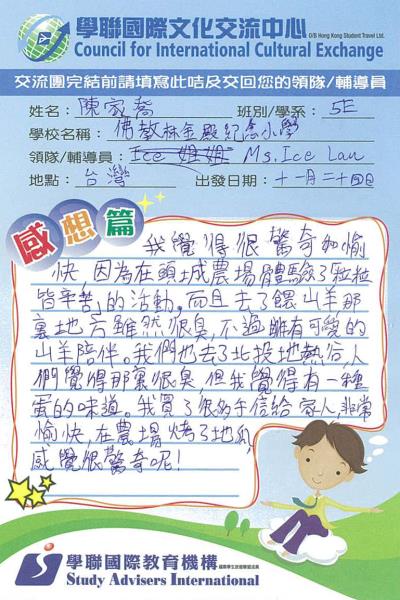 學聯國際文化交流中心
O/B Hong Kong Student Travel Ltd.
Council for International Cultural Exchange
交流團完結前請填寫此咭及交回您的領隊/輔導員
姓名：陳家喬 班別/學系：5E
學校名稱：佛教林金殿紀念小學
領隊/輔導員：Ice 姐姐 Ms. Ice Lau
地點：台灣 出發日期：十一月二十四日
感想篇
我覺得很驚奇和愉
快，因為在頭城農場體驗了粒粒
皆辛苦的活動。而且去了餵山羊，那
裏地方雖然很臭，不過擁有可愛的
山羊陪伴。我們也去了北投地熱谷，人
們覺得那裏很臭，但我覺得有一種
蛋的味道。我買了很多手信給家人，非常
愉快，在農場烤了地瓜，
感覺很驚奇呢！
學聯國際教育機構
Study Advisers International